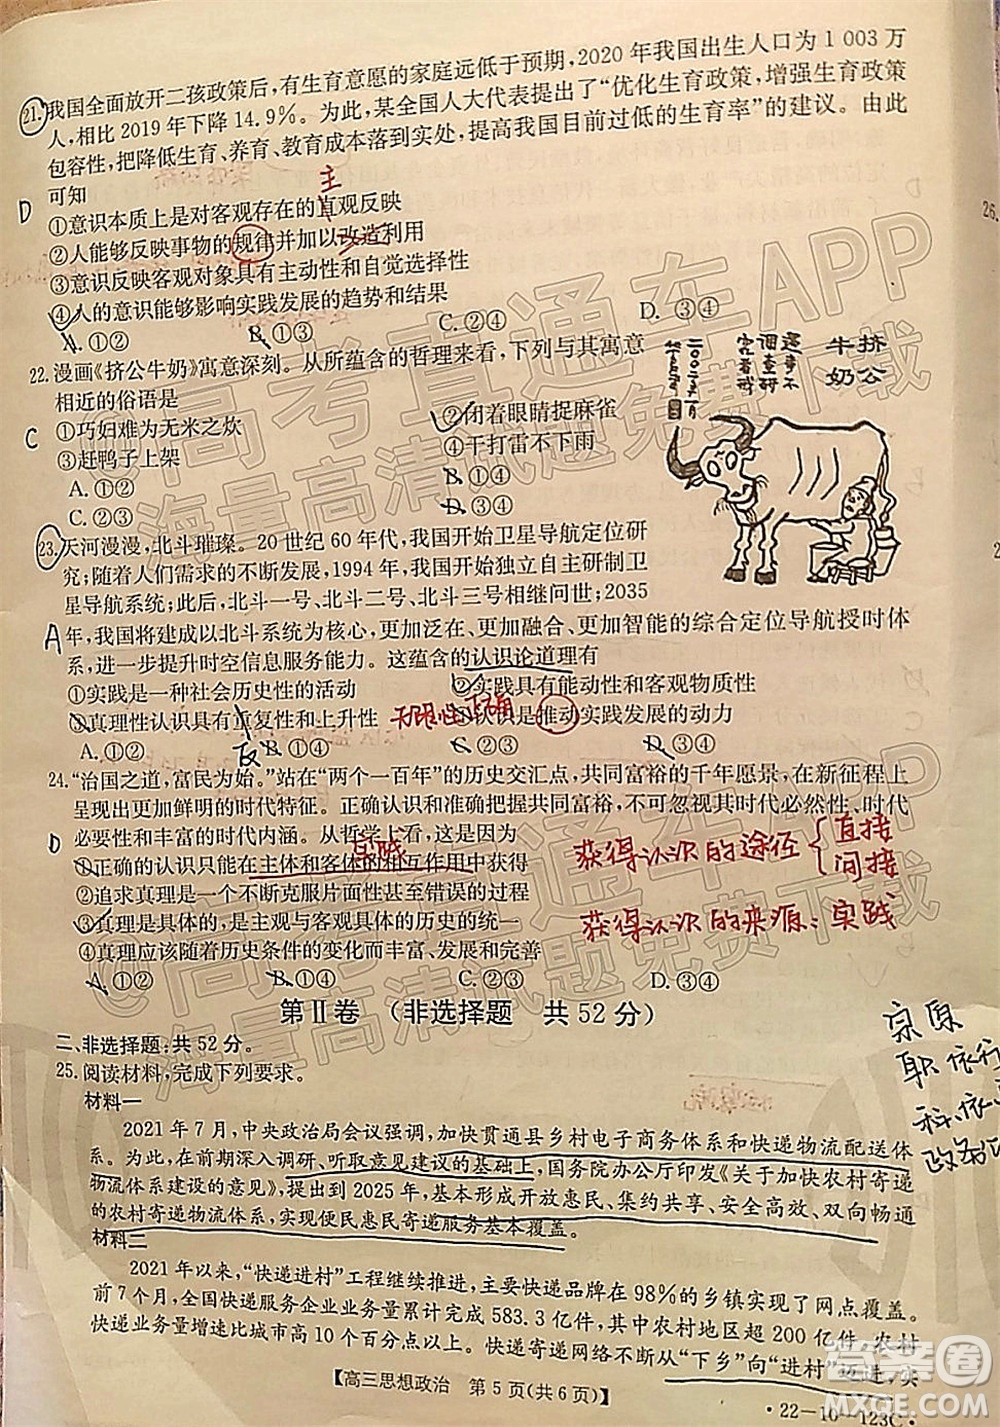 21.我国全面放开二孩政策后,有生育意愿的家庭远低于预期,2020年我国出生人口为1 003万
人,相比2019年下降14.9%。为此,某全国人大代表提出了“优化生育政策,增强生育政策
包容性,把降低生育、养育、教育成本落到实处,提高我国目前过低的生育率”的建议。由此
可知
主
D
①意识本质上是对客观存在的直观反映
②人能够反映事物的规律并加以改造利用
③意识反映客观对象具有主动性和自觉选择性
④人的意识能够影响实践发展的趋势和结果
A.①② B.①③ C.②④ D.③④
22.漫画《挤公牛奶》寓意深刻。从所蕴含的哲理来看,下列与其寓意
相近的俗语是
C
①巧妇难为无米之炊 ②闭着眼睛捉麻雀
③赶鸭子上架 ④干打雷不下雨
A.①② B.①④
C.②③ D.③④
挤公
牛奶
23.天河漫漫,北斗璀璨。20世纪60年代,我国开始卫星导航定位研
究;随着人们需求的不断发展,1994年,我国开始独立自主研制卫
星导航系统;此后,北斗一号、北斗二号、北斗三号相继问世;2035
A
年,我国将建成以北斗系统为核心,更加泛在、更加融合、更加智能的综合定位导航授时体
系,进一步提升时空信息服务能力。这蕴含的认识论道理有
①实践是一种社会历史性的活动 ②实践具有能动性和客观物质性
③真理性认识具有重复性和上升性 无限性 ④认识是推动实践发展的动力
反
A.①② B.①④ C.②③ D.③④
24.“治国之道,富民为始。”站在“两个一百年”的历史交汇点,共同富裕的千年愿景,在新征程上
呈现出更加鲜明的时代特征。正确认识和把握共同富裕,不可忽视其时代必然性、时代
D
必要性和丰富的时代内涵。从哲学上看,这是因为
实践
①正确的认识只能在主体和客体的相互作用中获得
②追求真理是一个不断克服片面性甚至错误的过程
③真理是具体的,是主观与客观具体的历史的统一
④真理应该随着历史条件的变化而丰富、发展和完善
A.①② B.①③ C.②③ D.③④
获得认识的途径{直接
间接
获得认识的来源:实践
第Ⅱ卷 (非选择题 共52分)
二、非选择题:共52分。
25.阅读材料,完成下列要求。
材料一
2021年7月,中央政治局会议强调,加快贯通县乡村电子商务体系和快递物流配送体
系。为此,在前期深入调研、听取意见建议的基础上,国务院办公厅印发《关于加快农村寄递
物流体系建设的意见》,提出到2025年,基本形成开放惠民、集约共享、安全高效、双向畅通
的农村寄递物流体系,实现便民惠民寄递服务基本覆盖。
材料二
2021年以来,“快递进村”工程继续推进,主要快递品牌在98%的乡镇实现了网点覆盖。
前7个月,全国快递服务企业业务量累计完成583.3亿件,其中农村地区超200亿件,农村
快递业务量增速比城市高10个百分点以上。快递寄递网络不断从“下乡”向“进村”延进,实
【高三思想政治 第5页(共6页)】
·22-10-123C·
宗原
职依行
26.
@高考直通车APP
海量高清试题免费下载
@高考直通车APP
海量高清试题免费下载
答案圈